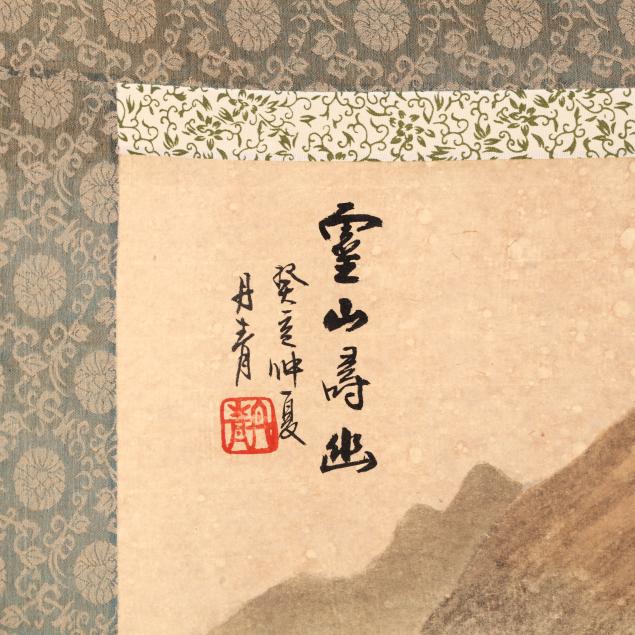 靈山尋幽
癸亥仲夏
丹青
丹青